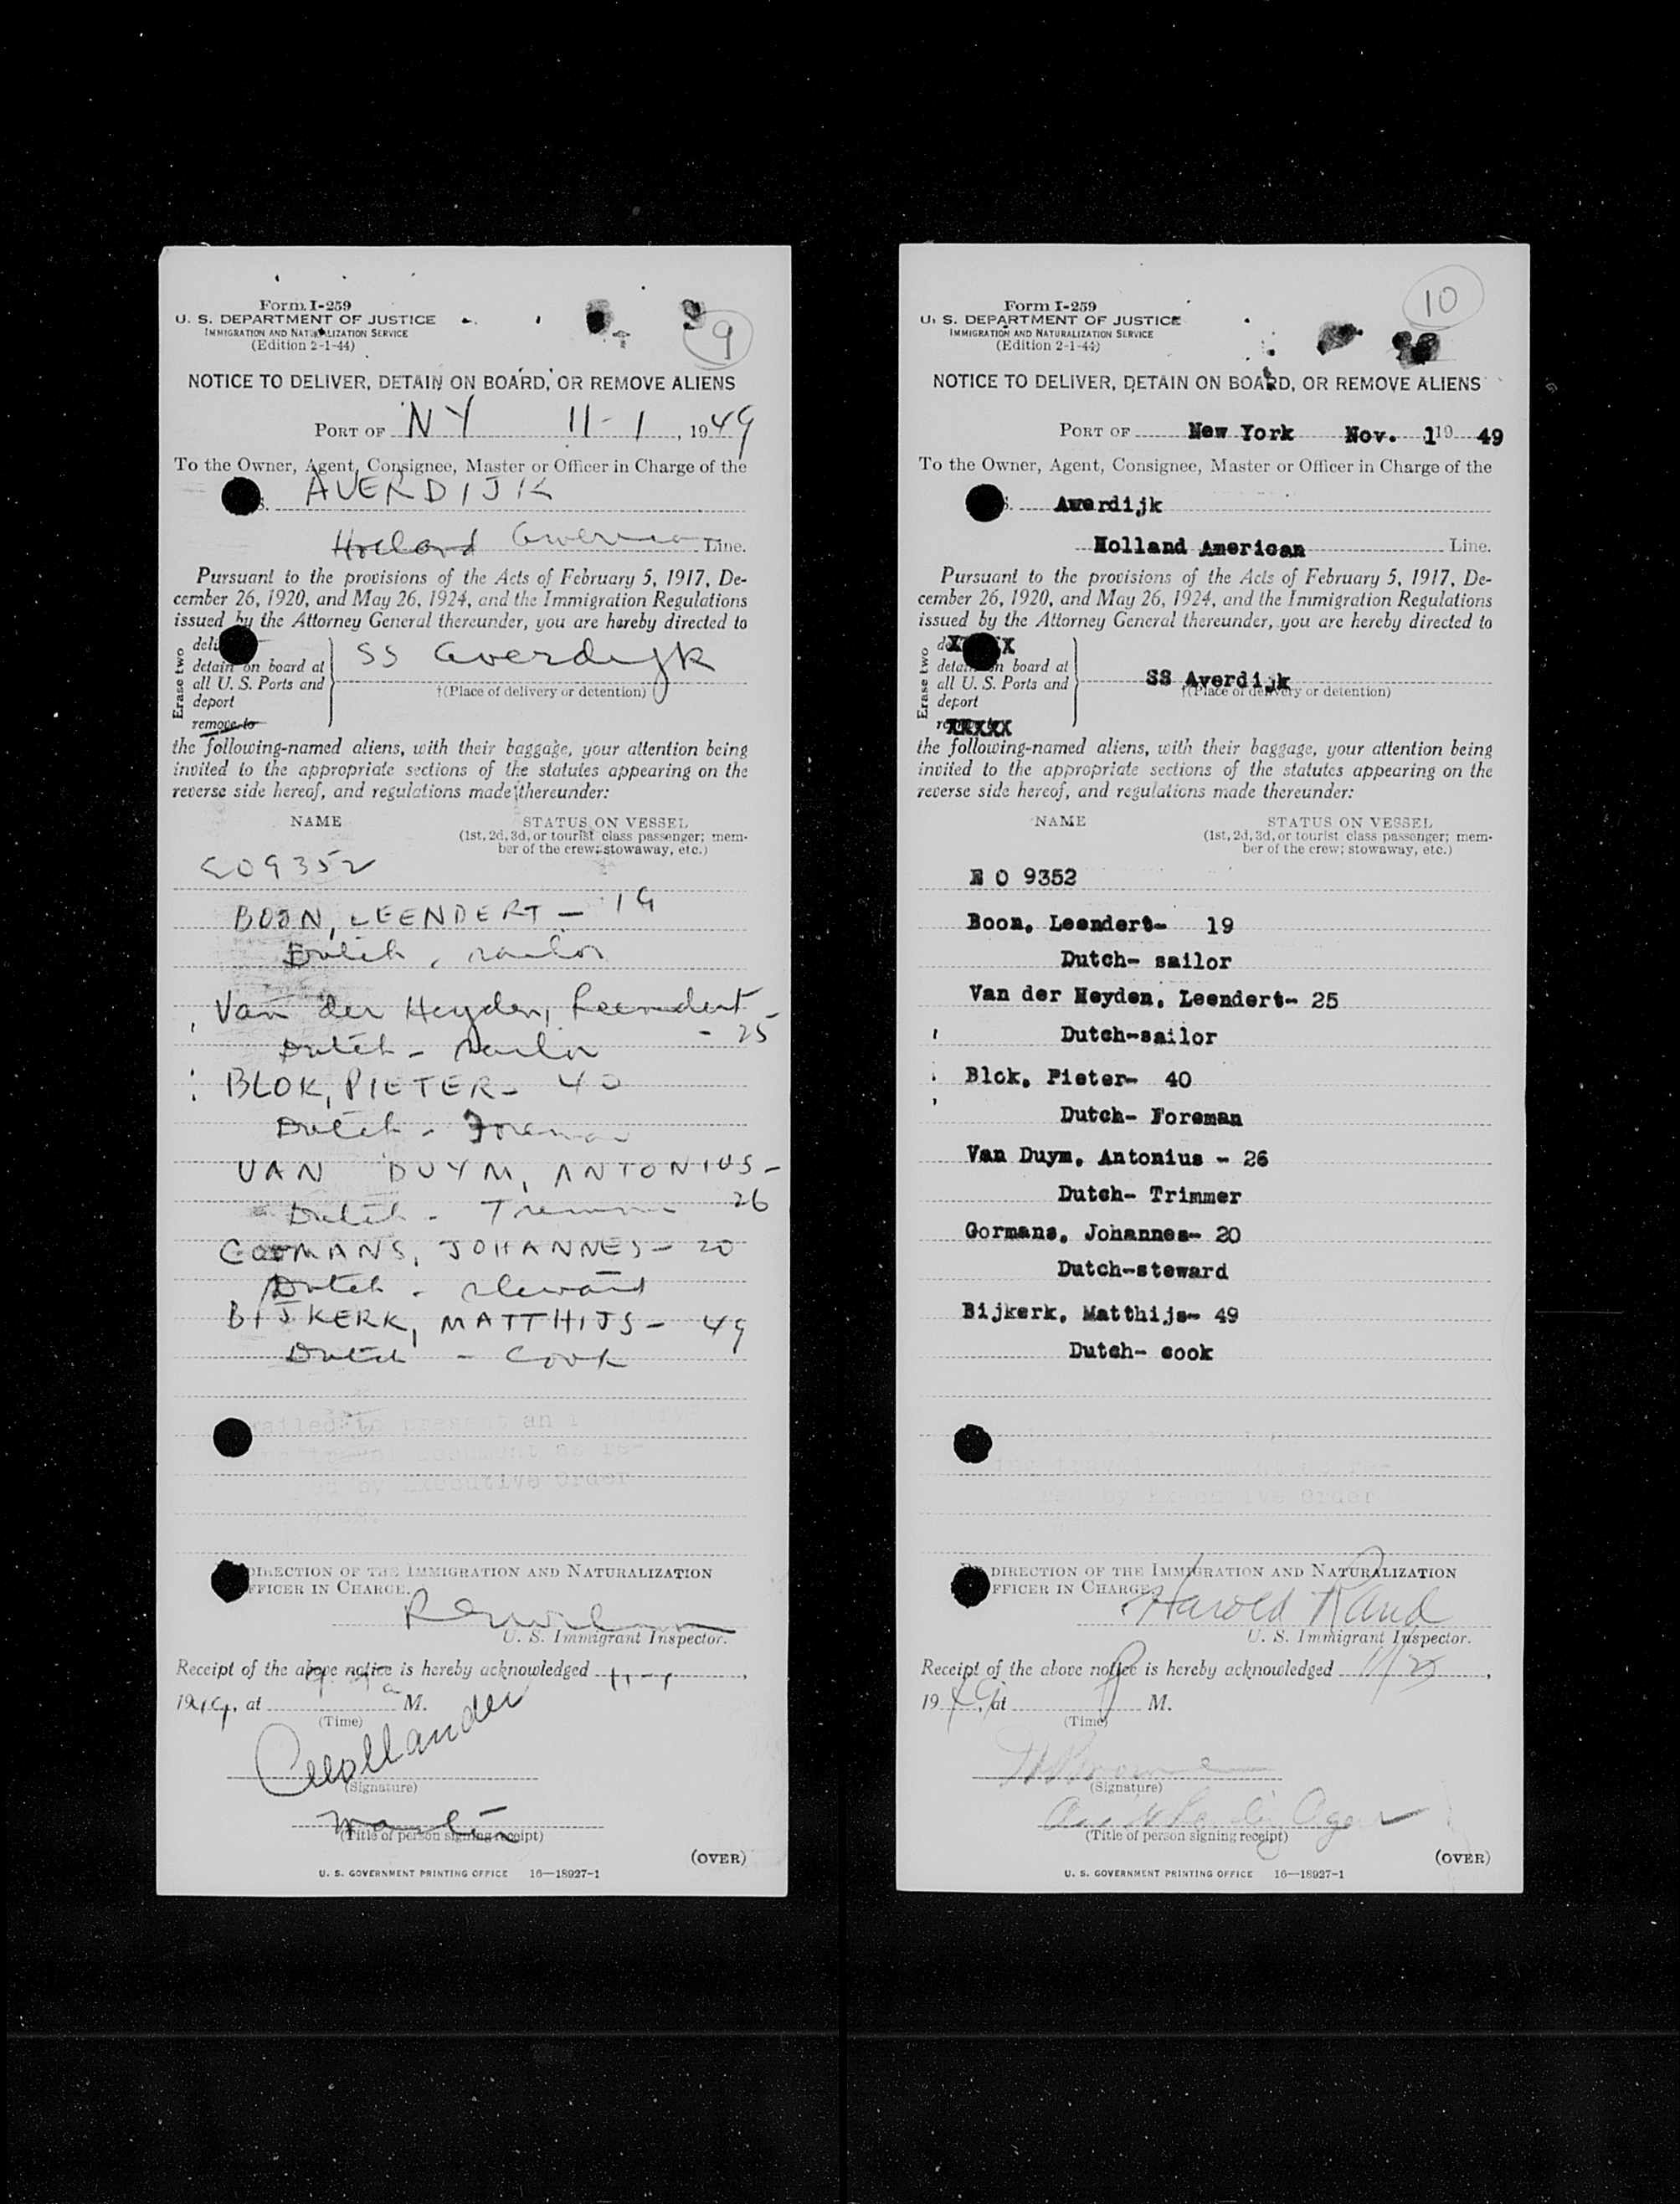 Form I-259
U. S. DEPARTMENT OF JUSTICE
IMMIGRATION AND NATURALIZATION SERVICE
(Edition 2-1-44)
9
NOTICE TO DELIVER, DETAIN ON BOARD, OR REMOVE ALIENS
PORT OF NY 11-1, 1949
To the Owner, Agent, Consignee, Master or Officer in Charge of the
AVERDIJK
Holland American Line.
Pursuant to the provisions of the Acts of February 5, 1917, De-
cember 26, 1920, and May 26, 1924, and the Immigration Regulations
issued by the Attorney General thereunder, you are hereby directed to
Erase two
detain on board at
all U. S. Ports and
deport
remove to
SS Averdijk
†(Place of delivery or detention)
the following-named aliens, with their baggage, your attention being
invited to the appropriate sections of the statutes appearing on the
reverse side hereof, and regulations made thereunder:
NAME STATUS ON VESSEL
(1st, 2d, 3d, or tourist class passenger; mem-
ber of the crew; stowaway, etc.)
EO9352
BOON, LEENDERT - 19
Dutch, sailor
Van der Heyden, Leendert
- 25
Dutch - sailor
BLOK, PIETER - 40
Dutch - Foreman
VAN DUYM, ANTONIUS -
26
Dutch - Trimmer
GORMANS, JOHANNES - 20
Dutch - steward
BIJKERK, MATTHIJS - 49
Dutch - Cook
DIRECTION OF THE IMMIGRATION AND NATURALIZATION
FFICER IN CHARGE.
U. S. Immigrant Inspector.
Receipt of the above notice is hereby acknowledged 11-1,
1949, at M.
(Time)
(Signature)
(Title of person signing receipt)
(OVER)
U. S. GOVERNMENT PRINTING OFFICE 16—18927-1
Form I-259
U. S. DEPARTMENT OF JUSTICE
IMMIGRATION AND NATURALIZATION SERVICE
(Edition 2-1-44)
10
NOTICE TO DELIVER, DETAIN ON BOARD, OR REMOVE ALIENS
PORT OF New York Nov. 1 19 49
To the Owner, Agent, Consignee, Master or Officer in Charge of the
Averdijk
Holland American Line.
Pursuant to the provisions of the Acts of February 5, 1917, De-
cember 26, 1920, and May 26, 1924, and the Immigration Regulations
issued by the Attorney General thereunder, you are hereby directed to
Erase two
detain on board at
all U. S. Ports and
deport
SS Averdijk
†(Place of delivery or detention)
the following-named aliens, with their baggage, your attention being
invited to the appropriate sections of the statutes appearing on the
reverse side hereof, and regulations made thereunder:
NAME STATUS ON VESSEL
(1st, 2d, 3d, or tourist class passenger; mem-
ber of the crew; stowaway, etc.)
E O 9352
Boon, Leendert- 19
Dutch- sailor
Van der Heyden, Leendert- 25
Dutch-sailor
Blok, Pieter- 40
Dutch- Foreman
Van Duym, Antonius - 26
Dutch- Trimmer
Gormans, Johannes- 20
Dutch-steward
Bijkerk, Matthijs- 49
Dutch- cook
DIRECTION OF THE IMMIGRATION AND NATURALIZATION
FFICER IN CHARGE
Harold Rand
U. S. Immigrant Inspector.
Receipt of the above notice is hereby acknowledged
1949, at M.
(Time)
(Signature)
(Title of person signing receipt)
(OVER)
U. S. GOVERNMENT PRINTING OFFICE 16—18927-1